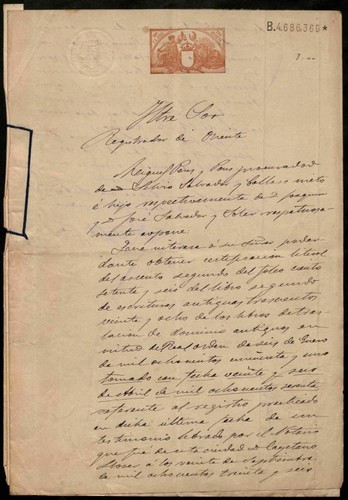 B.4.686.369*
Iltre Sor
Registrador de Oriente
Miguel Pons y Pons procurador
de D. Silvio Salvador y Collaso nieto
é hijo respectivamente de D. Joaquin
y D. José Salvador y Soler respetuosa-
mente expone
Que interesa á su Señor poder-
dante obtener certificacion literal
del asiento segundo del folio ciento
setenta y seis del libro segundo
de escrituras antiguas trescientos
veinte y ocho de los libros de tras-
lacion de dominio antiguos en
virtud de Real orden de seis de Enero
de mil ochocientos cincuenta y uno
tomado con fecha veinte y seis
de Abril de mil ochocientos sesenta
referente al registro practicado
en dicha última fecha de un
testimonio librado por el Notario
que fué de esta ciudad D. Cayetano
á los veinte de Septiembre
de mil ochocientos treinta y seis